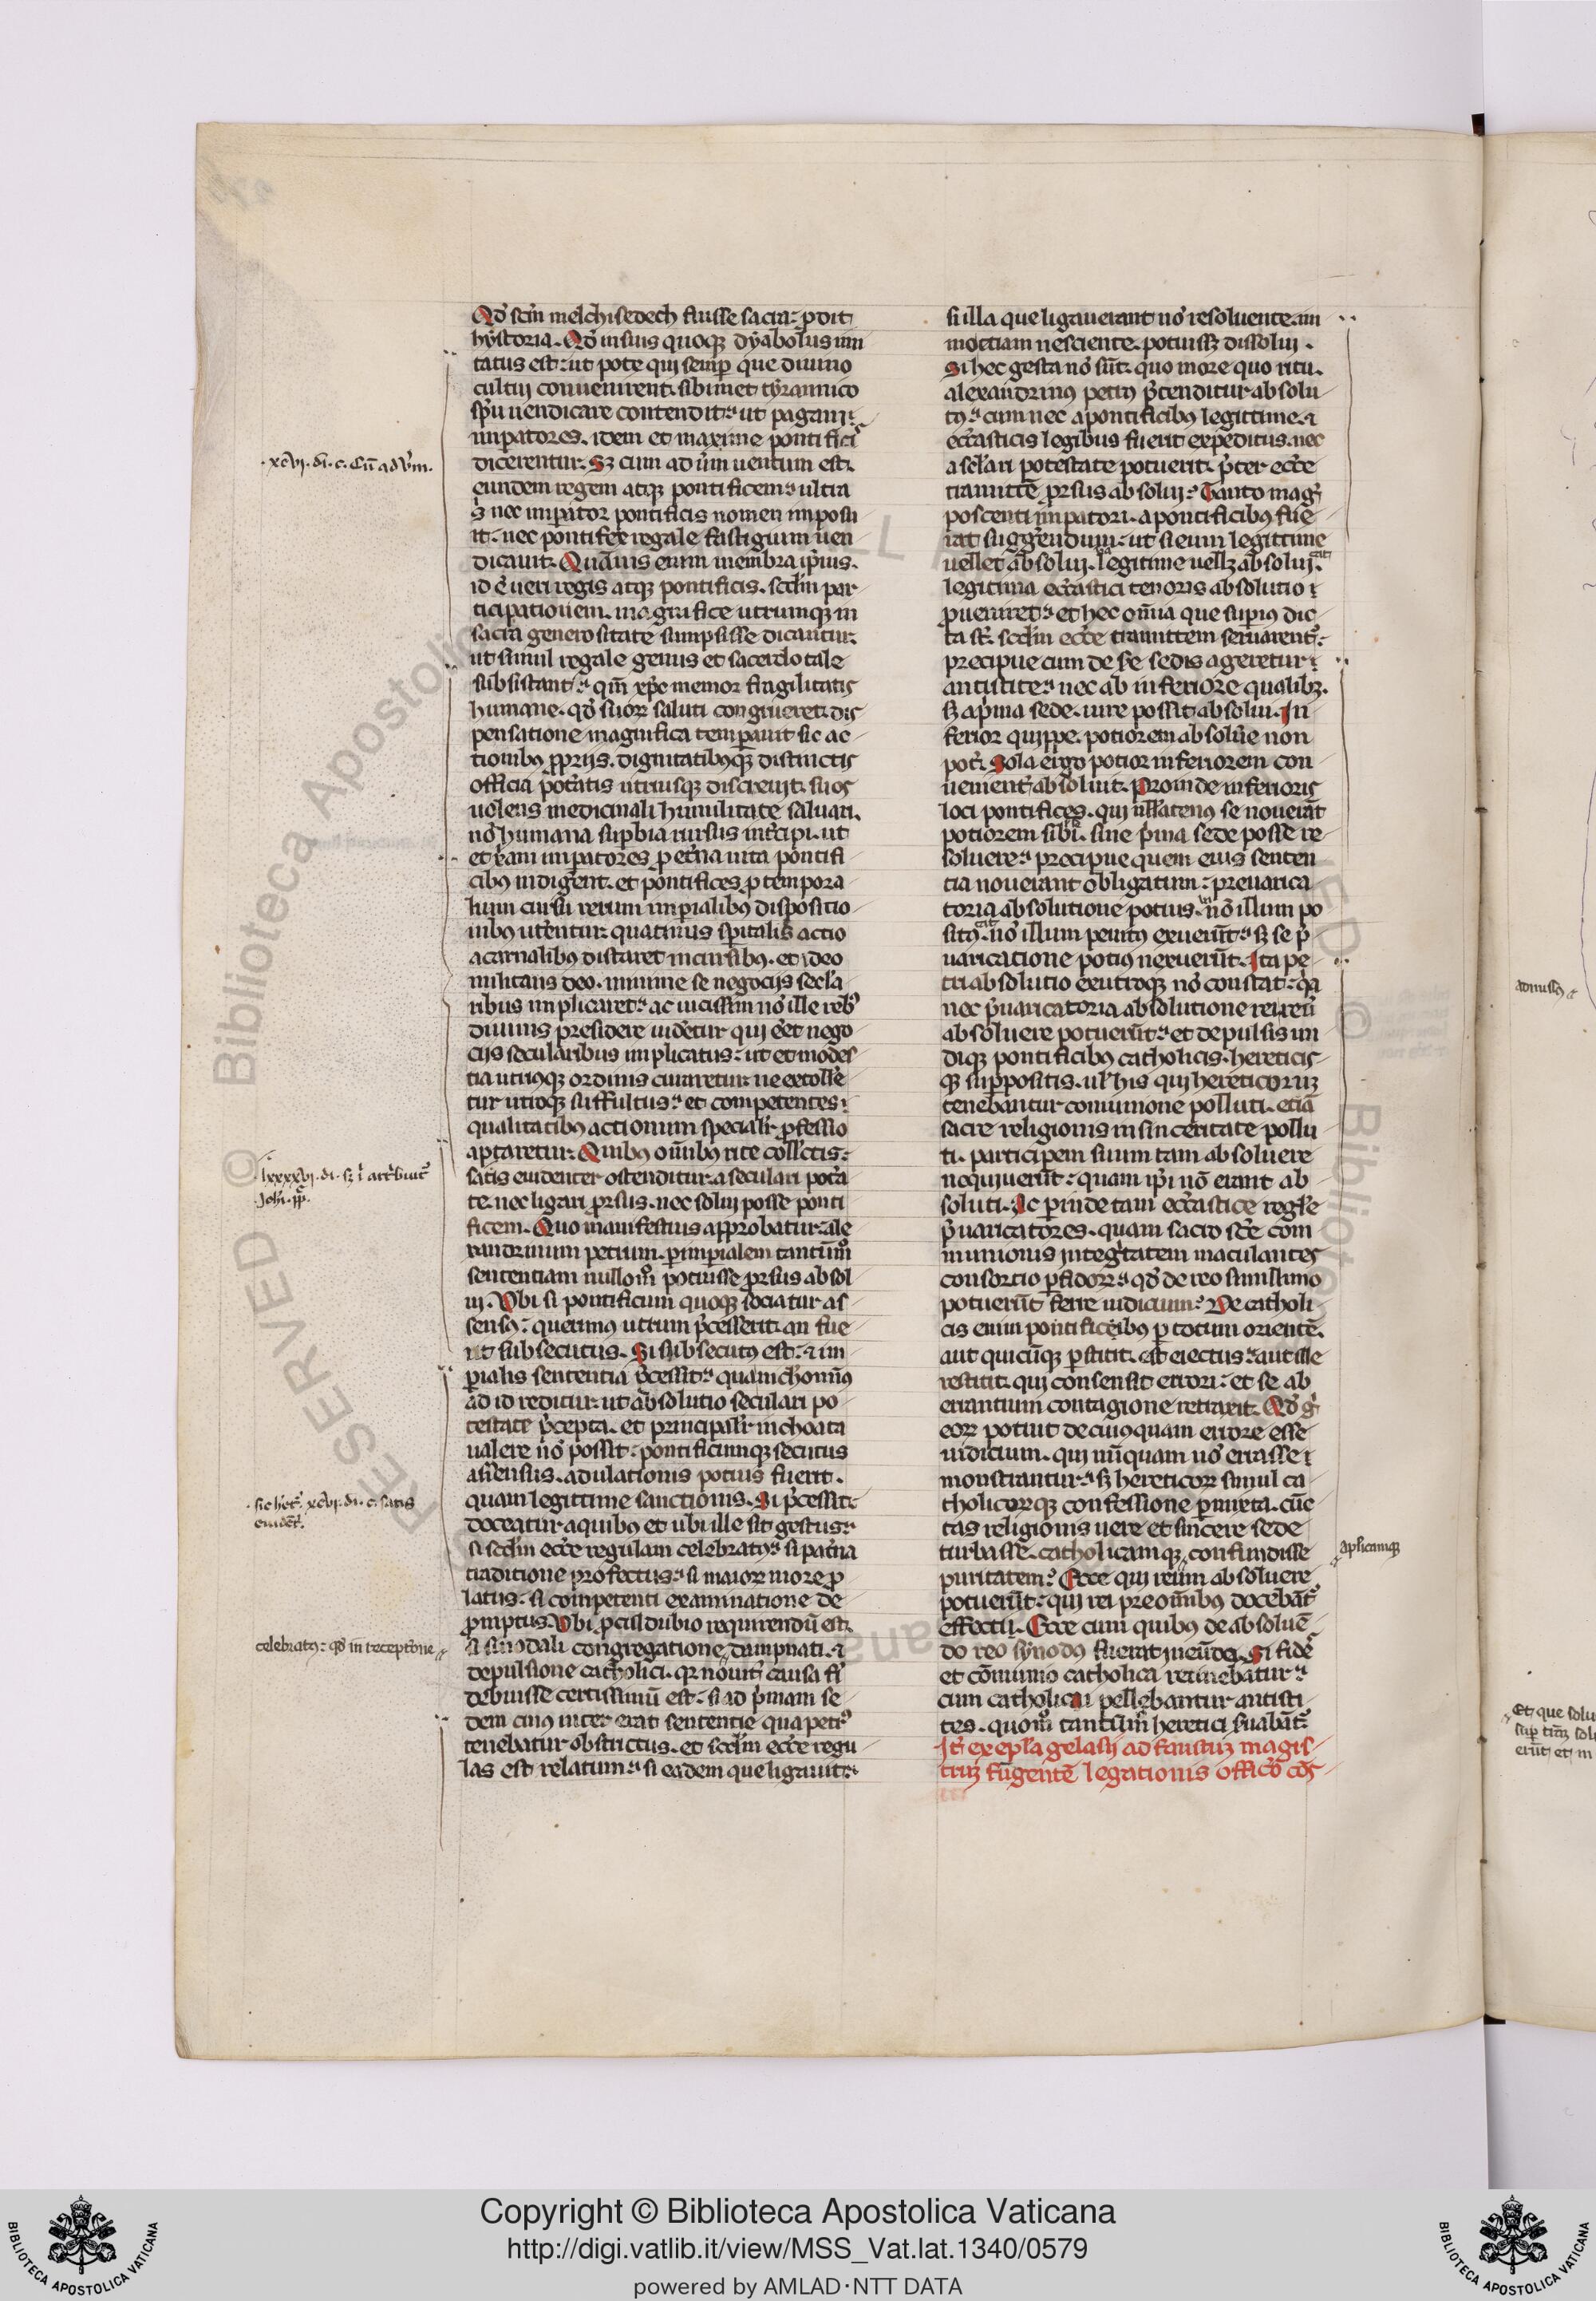 Qd̛ sc̄m melchisedech fuisse sacra: ꝓdit
hystoria. Qd̛ in suis quoqꝫ dyabolus imi
tatus est: ut pote qui semꝑ que diuino
cultij conuenirent. sibimet tyrannico
sp̄u uendicare contendit: ut pagani
imꝑatores. idem et maxime pontifici
dicerentur. Sꝫ cum ad uım uentum est.
eundem regem atqꝫ pontificem: ultra
s̄ nec imꝑator pontificis nomen imposu
it: nec pontifex regale fastigium uen
dicauit. Quāuis enim membra ip̄ius.
id ē ueri regis atqꝫ pontificis. sc̄dm par
ticipationem. magnifice utrumqꝫ in
sacra generositate sumpsisse dicantur.
ut simul regale genus et sacerdotale
subsistant: qm̄ xp̄c memor fragilitatis
humane. qd̛ suoꝝ saluti congrueret. dis
pensatione magnifica temꝑauit sic ac
tionibꝰ ꝓprijs. dignitatibusqꝫ distinctis
officia potatis utriusqꝫ discreuit. suos
uolens medicinali humilitate saluari.
nō humana suꝑbia rursus intcipi. ut
et xam imꝑatores ꝓ etna uita pontifi
cibꝰ indigent. et pontifices ꝓ tempora
lium cursu rerum imꝑialibꝰ dispositio
nibꝰ utentur. quatinus spitalis actio
a carnalibꝰ distaret incursibꝰ. et ideo
militans deo. minime se negocijs secla
ribus implicaret: ac uicissim nō ille rebꝰ
diuinis presidere uidetur qui eet nego
cijs secularibus implicatus: ut et modes
tia utriusqꝫ ordinis curaretur. ne extolle
tur utroqꝫ suffultus: et competentes
qualitatibꝰ actionum specialr ꝓfessio
aptaretur. Quibꝰ om̄ibꝰ rite collectis:
satis euidenter ostenditur. a seculari pota
te. nec ligari ꝓrsus. nec solui posse ponti
ficem. Quo manifestius approbatur. ale
xandrinum petrum. ꝑ imꝑialem tantum̄o
sententiam nullom̄o potuisse ꝓrsus absol
ui. Vbi si pontificum quoqꝫ sociatur as
sensꝰ: querimus utrum pcesserit. an fue
rit subsecutus. Si subsecutꝰ est: ⁊ im
ꝑialis sententia pcessit: quamchominꝰ
ad id reditur. ut absolutio seculari po
testate pcepta. et principalr inchoata
ualere nō possit: pontificumqꝫ secutus
assensus. adulationis potius fuerit.
quam legittime sanctionis. Si pcessit:
doceatur a quibꝰ et ubi ille sit gestus:
si sc̄dm ecc̄e regulam celebratꝰ: si patna
traditione profectus: si maioꝝ more ꝓ
latus: si competenti examinatione de
ꝓmptus. Vbi ꝓculdubio requirendū est.
si sinodali congregatione. dampnati. ⁊
depulsione catholici. qr nouit causa fi
debuisse certissimū est: si ad pmam se
dem cuiꝰ inter erat sententie qua petrꝰ
tenebatur obstrictus. et sc̄dm ecc̄e regu
las est relatum: si eadem que ligauit:
si illa que ligauerant nō resoluente. im
moetiam nesciente. potuissꝫ dissolui.
Si hec gesta nō sūt. quo more quo ritu.
alexandrinꝰ petrꝰ ptenditur absolu
tꝰ: cum nec a pontificibꝰ legittime. ⁊
eccasticis legibus fuerit expeditus. nec
a sclari potestate potuerit. pter ecc̄e
tramitē ꝓrsus absolui: Tanto magꝭ
poscenti imꝑatori. a pontificibꝰ fue
rat suggendum: ut si eum legittime
uellet absolui. legitime uellꝫ absolui.
legittima eccastici tenoris absolutio
ꝓueniret: et hec om̄ia que supius dic
ta st. sc̄dm ecc̄e tramitem seruarent:
precipue cum de se sedis ageretur
antistite: nec ab inferiore qualibꝫ.
sꝫ a pma sede. iure possit absolui. In
ferior quippe. potiorem absolue non
pot. Sola ergo potior inferiorem con
uenient absoluit. Proinde inferioris
loci pontifices. qui nllatenꝰ se nouerāt
potiorem sibi. sine pma sede posse re
soluere: precipue quem eius senten
tia nouerant obligatum: preuarica
toria absolutione potius. nō illum po
sitꝰ. nō illum penitꝰ exuerūt: sꝫ se p
uaricatione potiꝰ nexuerūt. Ita pe
tri absolutio exutroqꝫ nō constat: qa
nec puaricatoria absolutione rei reū
absoluere potuerūt: et depulsis un
diqꝫ pontificibꝰ catholicis. hereticis
qꝫ suppositis. ul his qui hereticoruꝫ
tenebantur comunione polluti. etiā
sacre religionis in sinceritate pollu
ti. participem suum tam absoluere
nequiuerūt: quam ip̄i nō erant ab
soluti. Ac perinde tam eccastice regle
puaricatores. quam sacro sc̄e com
munionis integtatem maculantes
consortio ꝑfidoꝝ: qd̛ de reo simillimo
potuerūt ferre iudicium: De catholi
cis enim pontificibus ꝑ totum orientē.
aut quicūqꝫ ꝑstitit. ē eiectus: aut ille
restitit. qui consensit errori: et se ab
errantium contagione retraxit. Qd̛ g
eoꝝ potuit de cuiusquam errore esse
iudicium. qui nūquam nō errasse
monstrantur: sꝫ hereticoꝝ simul ca
tholicoꝝqꝫ confessione ꝑmixta. cūc
tas religionis uere et sincere sede
turbasse. catholicamqꝫ confundisse
puritatem: Ecce qui reum absoluere
potuerūt: qui rei pre om̄ibꝰ docebāt
effecti. Ecce cum quibus de absoluē
do reo synodꝰ fuerat ineūda. Si fide
et cōmunio catholica retinebatur:
cum catholici pellebantur antisti
tes. quom̄o tantum̄o heretici suabāt.
It ex epla gelasij ad faustuꝫ magis
truꝫ fungentē legationis officō cōs
.xcvj. di. c. Cū ad uım.
.lxxxxvj. di. sꝫ i attbuit
Joh. pp.
.sic hēt. xcvj. di. c. satis
euidēt.
celebratꝰ: qd̛ in receptione
aplicamqꝫ
admissꝰ
Et que solu
sup tm̄ solu
erūt et in
Copyright © Biblioteca Apostolica Vaticana
http://digi.vatlib.it/view/MSS_Vat.lat.1340/0579
powered by AMLAD·NTT DATA
BIBLIOTECA APOSTOLICA VATICANA
BIBLIOTECA APOSTOLICA VATICANA